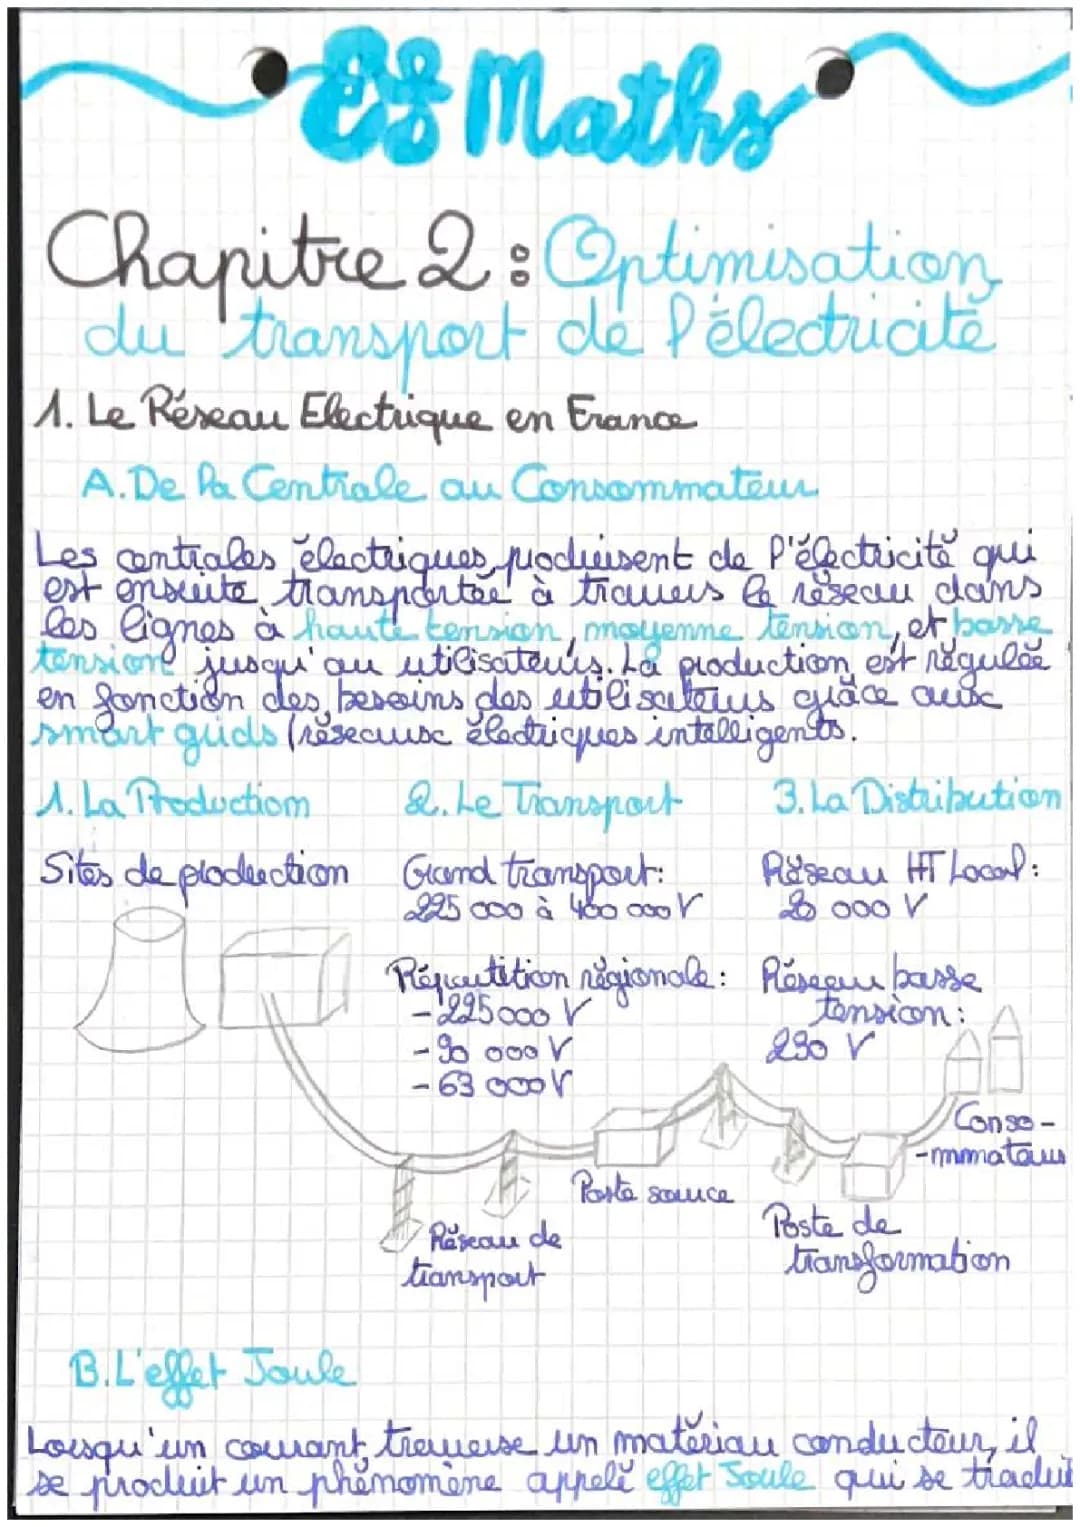 ES Maths
Chapitre 2 : Optimisation
du transport de l'électricité
1. Le Réseau Electrique en France
A. De la Centrale au Consommateur
Les centrales électriques produisent de l'électricité qui
est ensuite transportée à travers le réseau dans
les lignes à haute tension, moyenne tension, et basse
tension jusqu'au utilisateurs. La production est régulée
en fonction des besoins des utilisateurs grâce aux
smart grids (réseaux électriques intelligents.
1. La Production
2. Le Transport
3. La Distribution
Sites de production
Grand transport :
225 000 à 400 000 V
Réseau HT Local :
20 000 V
Répartition régionale :
- 225 000 V
- 90 000 V
- 63 000 V
Réseau basse
tension :
230 V
Conso-
-mmateurs
Poste source
Réseau de
transport
Poste de
transformation
B. L'effet Joule
Lorsqu'un courant traverse un matériau conducteur, il
se produit un phénomène appelé effet Joule qui se traduit